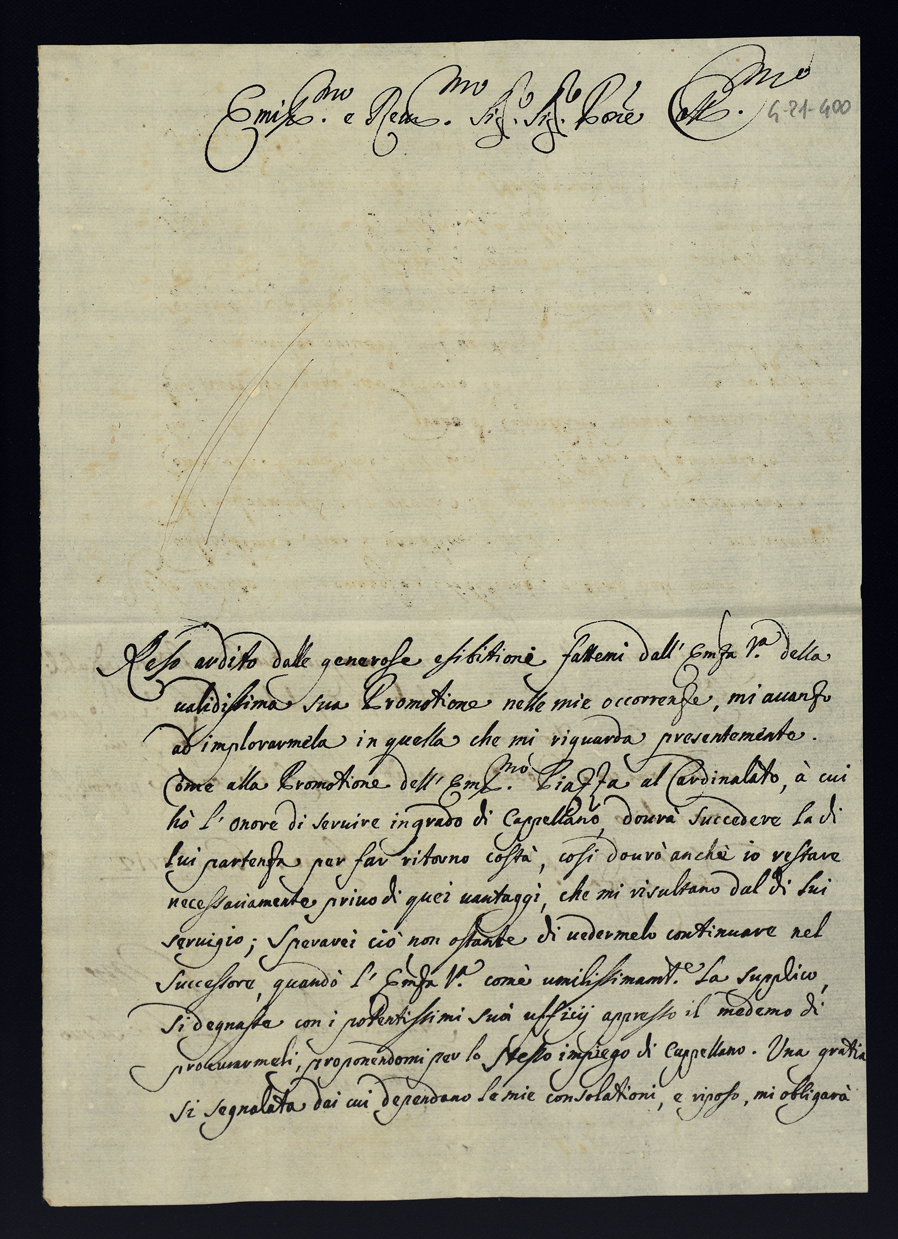 Emin.mo e Reu.mo Sig.r Sig.r Prõe Coll.mo
4-21-400
Reso ardito dalle generose esibitioni fattemi dall' Emza V.a della
ualidissima sua Promotione nelle mie occorrenze, mi auanzo
ad implorarmela in quella che mi riguarda presentemente.
Come alla Promotione dell' Em.mo Piazza al Cardinalato, à cui
hò l' onore di seruire in grado di Cappellano, dourà succedere la di
lui partenza per far ritorno costà, così dourò anchè io restare
necessariamente priuo di quei uantaggi, che mi risultano dal di lui
seruigio; sperarei ciò non ostante di uedermelo continuare nel
successore, quandò l' Emza V.a comè umilissimam.te La supplico,
si degnasse con i potentissimi suoi uffizij appresso il medemo di
procurarmeli, proponendomi per lo stesso impiego di Cappellano. Una gratia
si segnalata dai cui dependano le mie consolationi, e riposo, mi obligarà